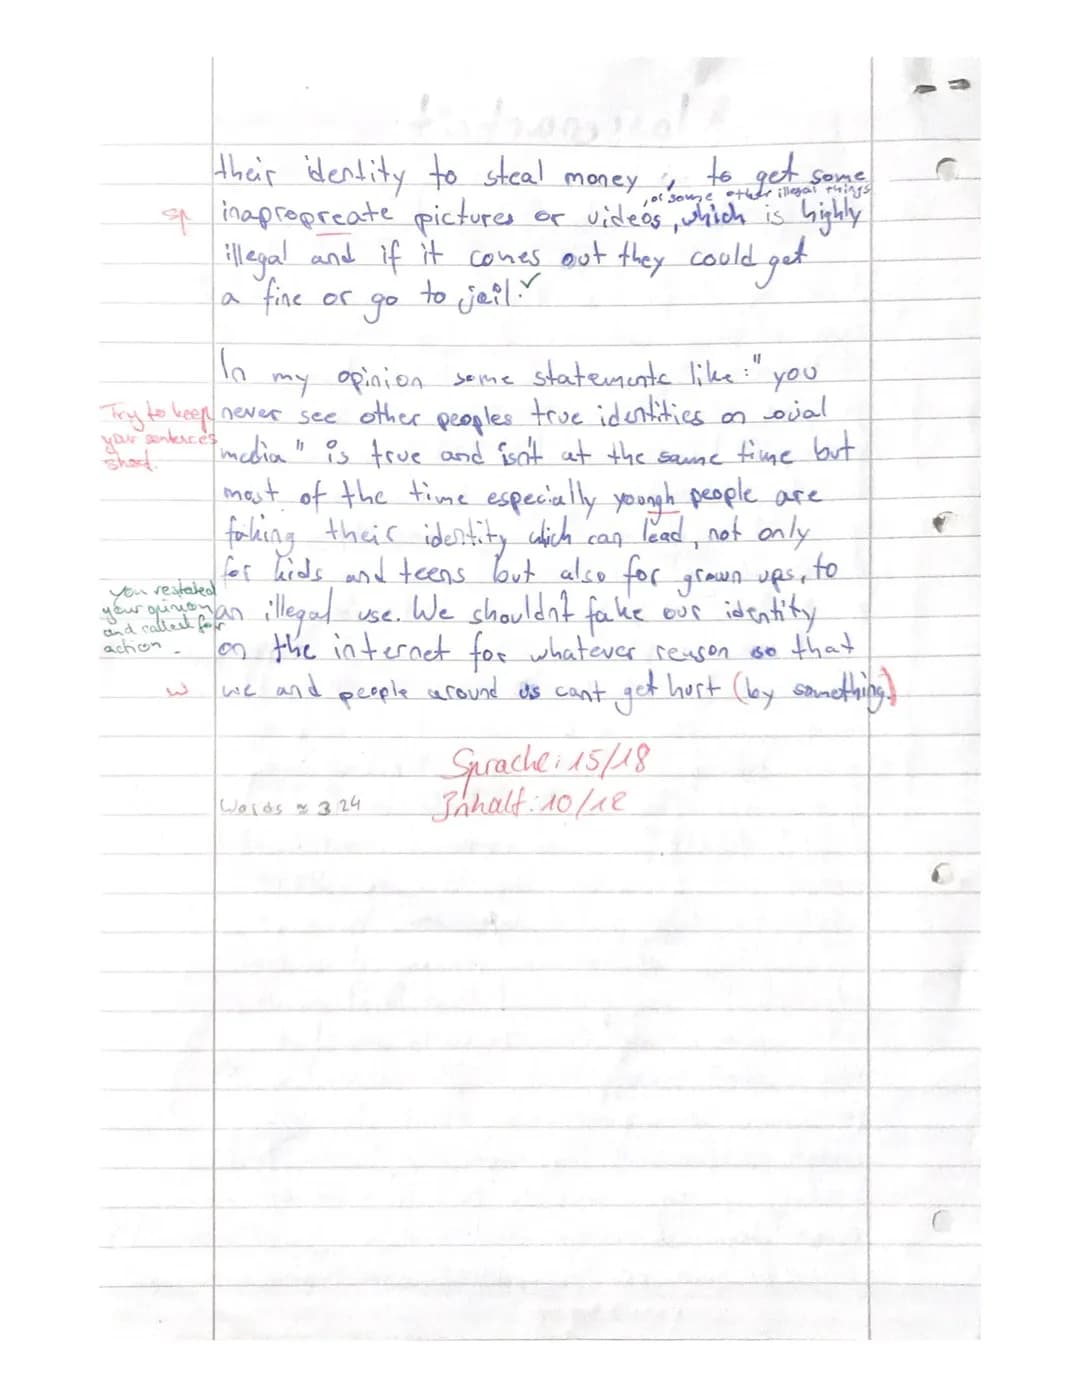 their identity to steal money, to get some
, or some other illegal things
sp inapropreate pictures or videos, which is highly
illegal and if it comes out they could get
a fine or go to jail. ✓
In my opinion some statements like: "you
Try to keep never see other peoples true identities on social
your sentences media" is true and isn't at the same time but
short.
most of the time especially youngh people are
faking their identity which can lead, not only
for kids and teens but also for grown ups, to
you restated
your opinion an illegal use. We shouldn't fake our identity
and called for
action. on the internet for whatever reason so that
w we and people around us cant get hurt (by something.)
Sprache: 15/18
Words ≈ 324 Inhalt: 10/12